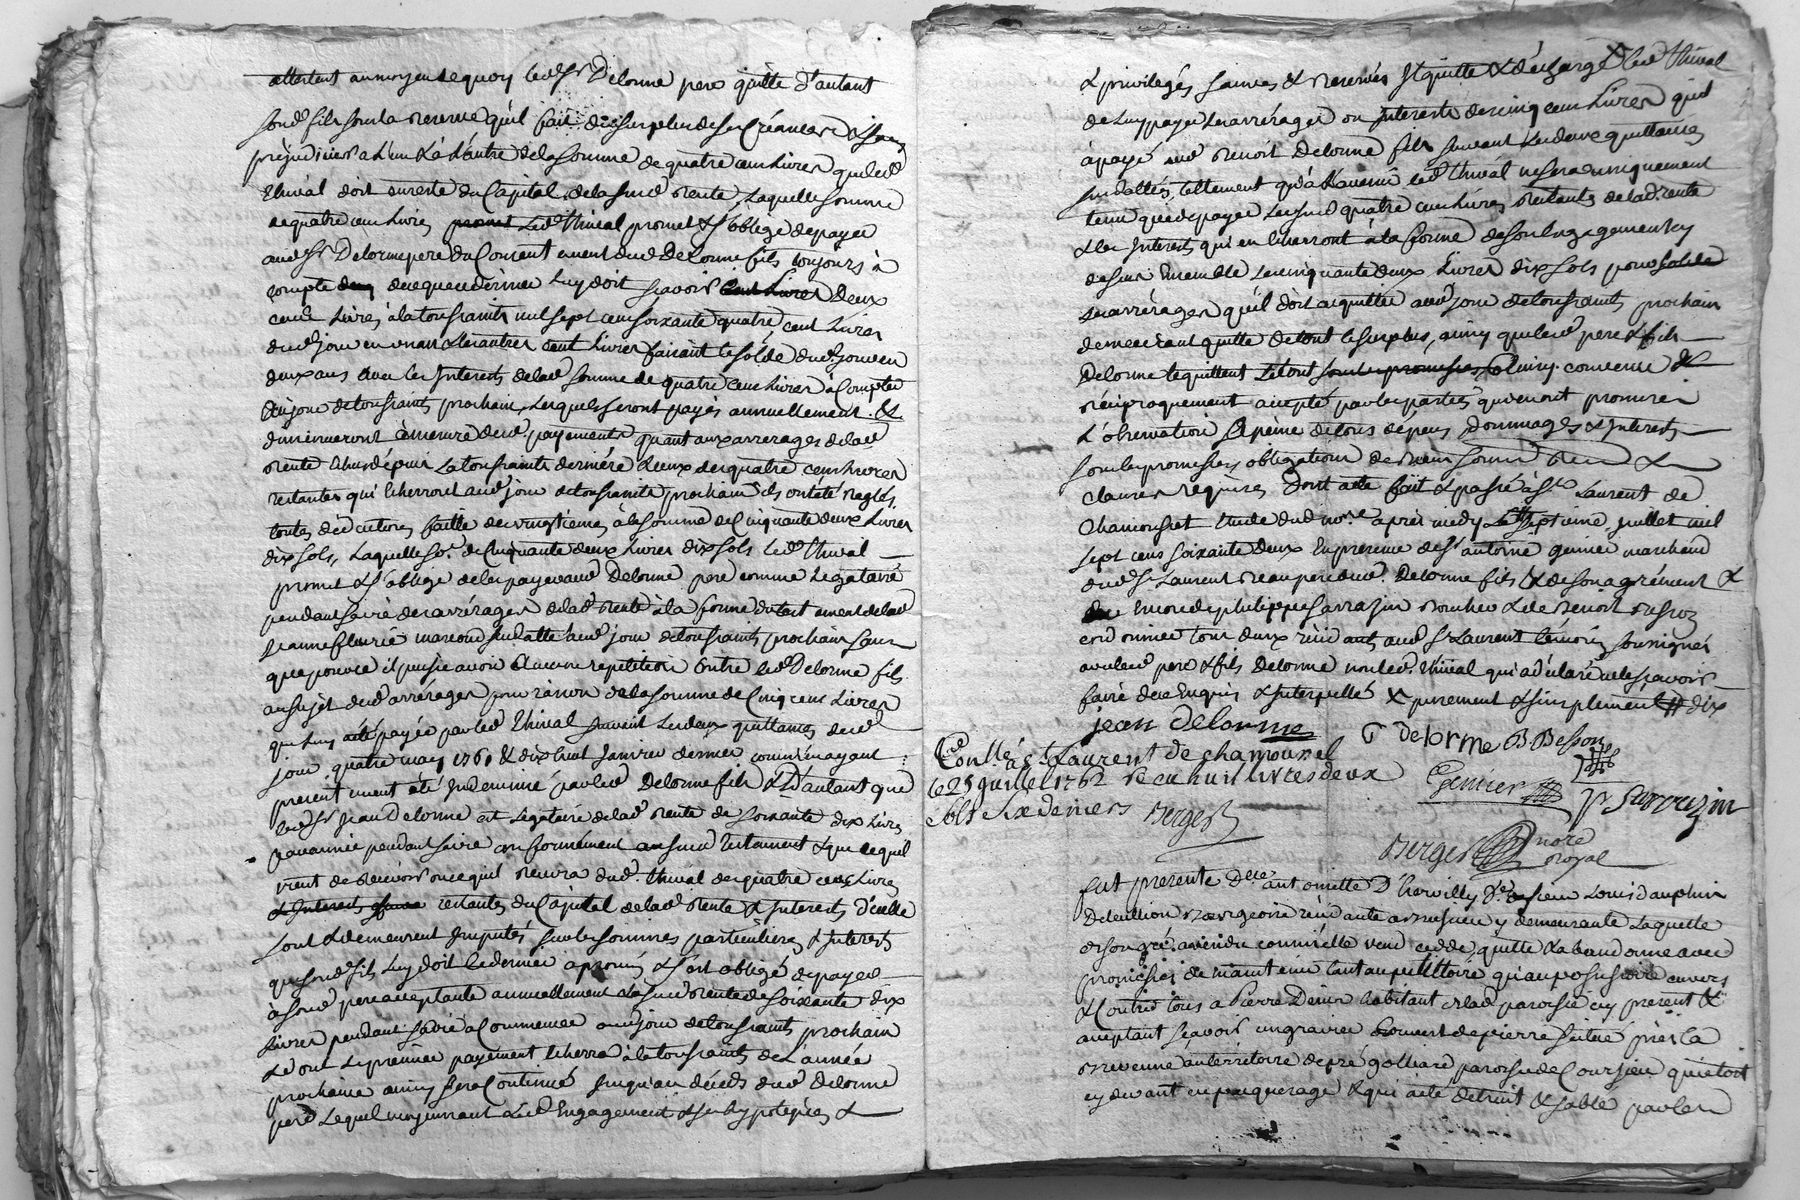 attestent au moyen de quoy led Sr Delorme pere quitte d'autant
sond fils sous la reserve qu'il fait du surplus de ses Créances & sans
prejudicier a l'un & a l'autre de la somme de quatre cens Livres que led
Thival doit en reste du Capital de la sud rente, Laquelle somme
de quatre cens Livres promet Led Thival promet & s'oblige de payer
aud Sr Delorme pere du Consentement dud Delorme fils toujours à
compte de ce que ce dernier luy doit scavoir cent Livres Deux
cens Livres à la toussaints mil sept cens soixante quatre cent Livres
dud jour en un an & les autres cent Livres faisant le solde dud jour en
deux ans avec les Interests de lad somme de quatre cens Livres à Compter
du jour de toussaints prochain, Lesquels seront payés annuellement &
diminueront à mesure desd payements, quant aux arrerages de lad
rente Echus depuis La toussaints derniére & ceux des quatre cens Livres
restantes qui Echerront aud jour de toussaints prochain ils ont été reglés,
toutes déductions faitte des vingtiemes à la somme de Cinquante deux Livres
dix sols, Laquelle so.e de Cinquante deux Livres dix sols led Thival
promet & s'oblige de les payer aud Delorme pere comme Legataire
pendant sa vie des arrérages de lad rente à la forme du testament de lad
Jeanne fleurie marcoud sus datté aud jour de toussaints prochain sans
que pour ce il puisse avoir Aucune repetition Contre led Delorme fils
au sujet dud arrérages pour raison de la somme de Cinq cens Livres
qui luy a été payée par led Thival suivant Les deux quittances desd
jour quatre may 1761 & dix huit Janvier dernier comme ayant
présentement été Indemnisé par led Delorme fils & D'autant que
led Sr Jean Delorme est Legataire de lad rente de soixante dix Livres
par année pendant sa vie conformément au sud testament & que ce qu'il
vient de recevoir ou ce qu'il recevra dud Thival des quatre cens Livres
& Interests restantes du Capital de lad rente & Interests d'icelle
sont & demeurent Imputés sur les sommes particulieres & Interests
que sond fils luy doit ce dernier a promis & s'est obligé de payer
à sond pere acceptante annuellement La sud rente de soixante dix
Livres pendant sa vie à Commencer aud jour de toussaints prochain
& dont Le premier payement Echerra à la toussaints de L'année
prochaine ainsy sera Continué jusqu'au décéds dud Delorme
pere Lequel moyennant Led Engagement & ses hypoteques &
& privilegés sauves & reservés Il quitte & décharge X led Thival
de luy payer les arrérages ou Interests des cinq cens Livres qu'il
à payé aud Benoit Delorme fils suivant Les deux quittances
sus dattées, tellement qu'à l'avenir led Thival ne sera uniquement
tenu que de payer Les sud quatre cens Livres restants de lad rente
& les Interests qui en Echerront à la forme de son Engagement cy
dessus Ensemble Les cinquante deux Livres dix sols pour solde
des arrérages qu'il doit acquitter aud jour de toussaints prochain
demeurant quitte de tout le surplus, ainsy que led pere & fils
Delorme le quittent Le tout sous les promesses, Et ainsy convenu &
réciproquement accepté par les parties qui en ont promis
L'observation A peine de tous dépens, Dommages & Interests
sous les promesses obligations de biens soumis ren &
clauses requises Dont acte fait & passé à St Laurent de
Chamousset Etude dud no.re après midy Le septieme juillet mil
sept cens soixante deux En presence de Sr antoine genier marchand
dud St Laurent beau pere dud Delorme fils & de son agrément &
Encore de philippe Sarrazin boucher & de Benoit Besson
cordonnier tous deux résidants aud St Laurent témoins soussignés
avec led pere & fils Delorme non led Thival qui a déclaré ne le scavoir
faire de ce Enquis & Interpellé X purement & simplement # dix
jean delorme B delorme B Besson
Conllé a St Laurent de chamousset
le 25 juillet 1762 Recu huit livres deux
sols six deniers Berger
Genier P Sarrazin
Berger no.re
royal
fut presente Dlle antoinette D'hervilly De de sieur Louis dauphin
Deteullion bourgeoise résidante a Brussieu y demeurante Laquelle
de son gré a vendu comme elle vend cedde, quitte & abandonne avec
promesses de maintenir tant au petittoire qu'au possessoire envers
& Contre tous à Pierre Denis habitant de lad paroisse icy présent &
acceptant scavoir un gravier Couvert de pierre scitué près la
brevenne au territoire de pré golliard paroisse de Courzieu qui étoit
cy devant en paquerage & qui a été detruit & sablé par les